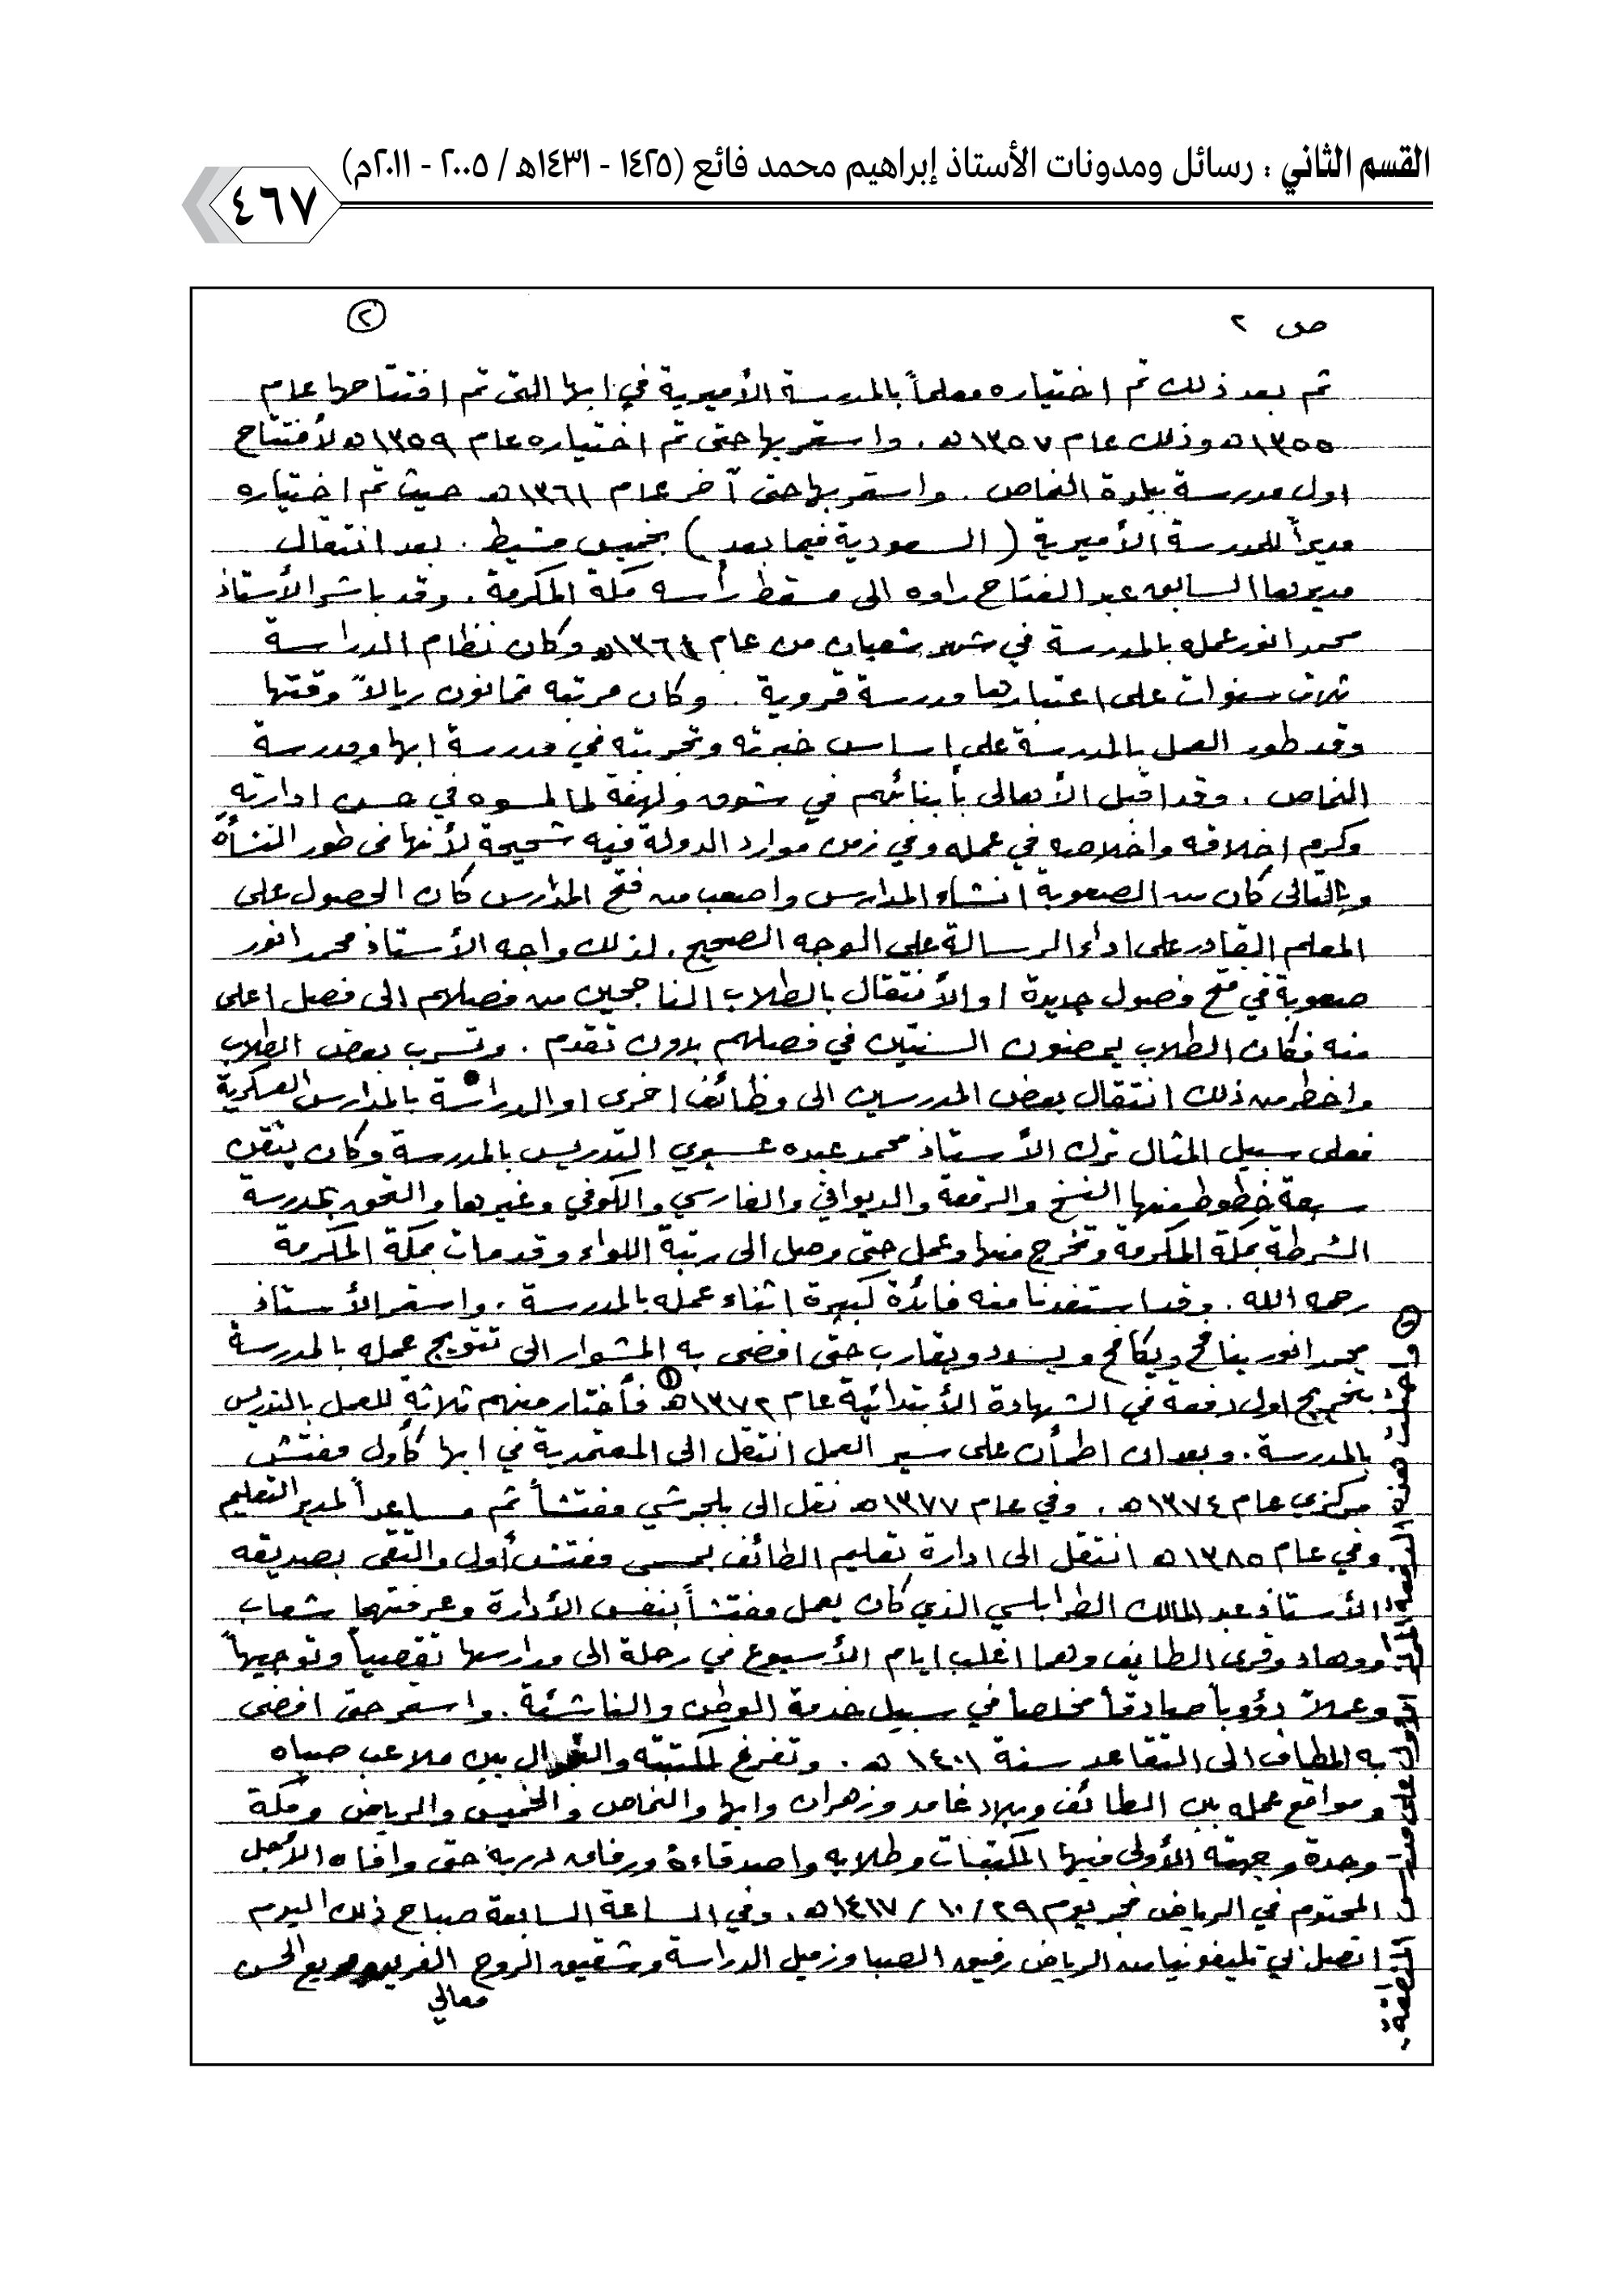 القسم الثاني : رسائل ومدونات الأستاذ إبراهيم محمد فائع (١٤٢٥ - ١٤٣١هـ / ٢٠٠٥ - ٢٠١١م)
٤٦٧
ص ٢
٢
ثم بعد ذلك تم اختياره معلماً بالمدرسة الأميرية في ابها التي تم افتتاحها عام
١٣٥٥هـ وذلك عام ١٣٥٧هـ . واستمر بها حتى تم اختياره عام ١٣٥٩هـ لأفتتاح
اول مدرسة ببلدة النماص . واستمر بها حتى آخر عام ١٣٦١هـ حيث تم اختياره
مديراً للمدرسة الأميرية ( السعودية فيما بعد ) بخميس مشيط . بعد انتقال
مديرها السابق عبد الفتاح راوه الى مسقط رأسه مكة المكرمة . وقد باشر الأستاذ
محمد انور عمله بالمدرسة في شهر شعبان من عام ١٣٦١هـ وكان نظام الدراسة
ثلاث سنوات على اعتبارها مدرسة قروية . وكان مرتبه ثمانون ريالاً وقتها
وقد طور العمل بالمدرسة على اساس خبرته وتجربته في مدرسة ابها ومدرسة
النماص . وقد اقبل الأهالى بأبنائهم في شوق ولهفة لما لمسوه في حسن ادارته
وكرم اخلاقه واخلاصه في عمله وفي زمن موارد الدولة فيه شحيحة لأنها في طور النشأة
وبالتالى كان من الصعوبة انشاء المدارس واصعب من فتح المدارس كان الحصول على
المعلم القادر على اداء الرسالة على الوجه الصحيح . لذلك واجه الأستاذ محمد انور
صعوبة في فتح فصول جديدة او الأنتقال بالطلاب الناجحين من فصلهم الى فصل اعلى
منه فكان الطلاب يمضون السنتين في فصلهم بدون تقدم . وتسرب بعض الطلاب
واخطر من ذلك انتقال بعض المدرسين الى وظائف اخرى او الدراسة بالمدارس العسكرية
فعلى سبيل المثال ترك الأستاذ محمد عبده عسيري التدريس بالمدرسة وكان يتقن
سبعة خطوط منها النسخ والرقعة والديواني والفارسي والكوفي وغيرها والتحق بمدرسة
الشرطة بمكة المكرمة وتخرج منها وعمل حتى وصل الى رتبة اللواء وقد مات بمكة المكرمة
رحمه الله . وقد استفدنا منه فائدة كبيرة اثناء عمله بالمدرسة . واستمر الأستاذ
محمد انور ينافح ويكافح ويسدد ويقارب حتى افضى به المشوار الى تتويج عمله بالمدرسة
بتخريج اول دفعة في الشهادة الأبتدائية عام ١٣٧٢هـ (١) فأختار منهم ثلاثة للعمل بالتدريس
بالمدرسة . وبعد ان اطمأن على سير العمل انتقل الى المعتمدية في ابها كأول مفتش
مركزي عام ١٣٧٤هـ . وفي عام ١٣٧٧هـ نقل الى بلجرشي مفتشاً ثم مساعداً لمدير التعليم
وفي عام ١٣٨٥هـ انتقل الى ادارة تعليم الطائف بمسمى مفتش أول والتقى بصديقه
الأستاذ عبد المالك الطرابلسي الذي كان يعمل مفتشاً بنفس الأدارة وعرفتهما شعاب
ووهاد وقرى الطايف وهما اغلب ايام الأسبوع في رحلة الى مدارسها تقصياً وتوجيهاً
وعملاً دؤوباً صادقاً مخلصا في سبيل خدمة الوطن والناشئة . واستمر حتى افضى
به المطاف الى التقاعد سنة ١٤٠١هـ . وتفرغ لمكتبته و بين ملاعب صباه
ومواقع عمله بين الطائف وبلاد غامد وزهران وابها والنماص والخميس والرياض ومكة
وجدة وجهته الأولى فيها المكتبات وطلابه واصدقاءة ورفاق دربه حتى وافاه الأجل
المحتوم في الرياض فجر يوم ٢٩/ ١٠/ ١٤١٧هـ . وفي الساعة السابعة صباح ذلك اليوم
اتصل بي تليفونيا من الرياض رفيق الصبا وزميل الدراسة وشقيق الروح الفريق
معالي
(١) هذه الدفعة الأولى على مستوى المنطقة .